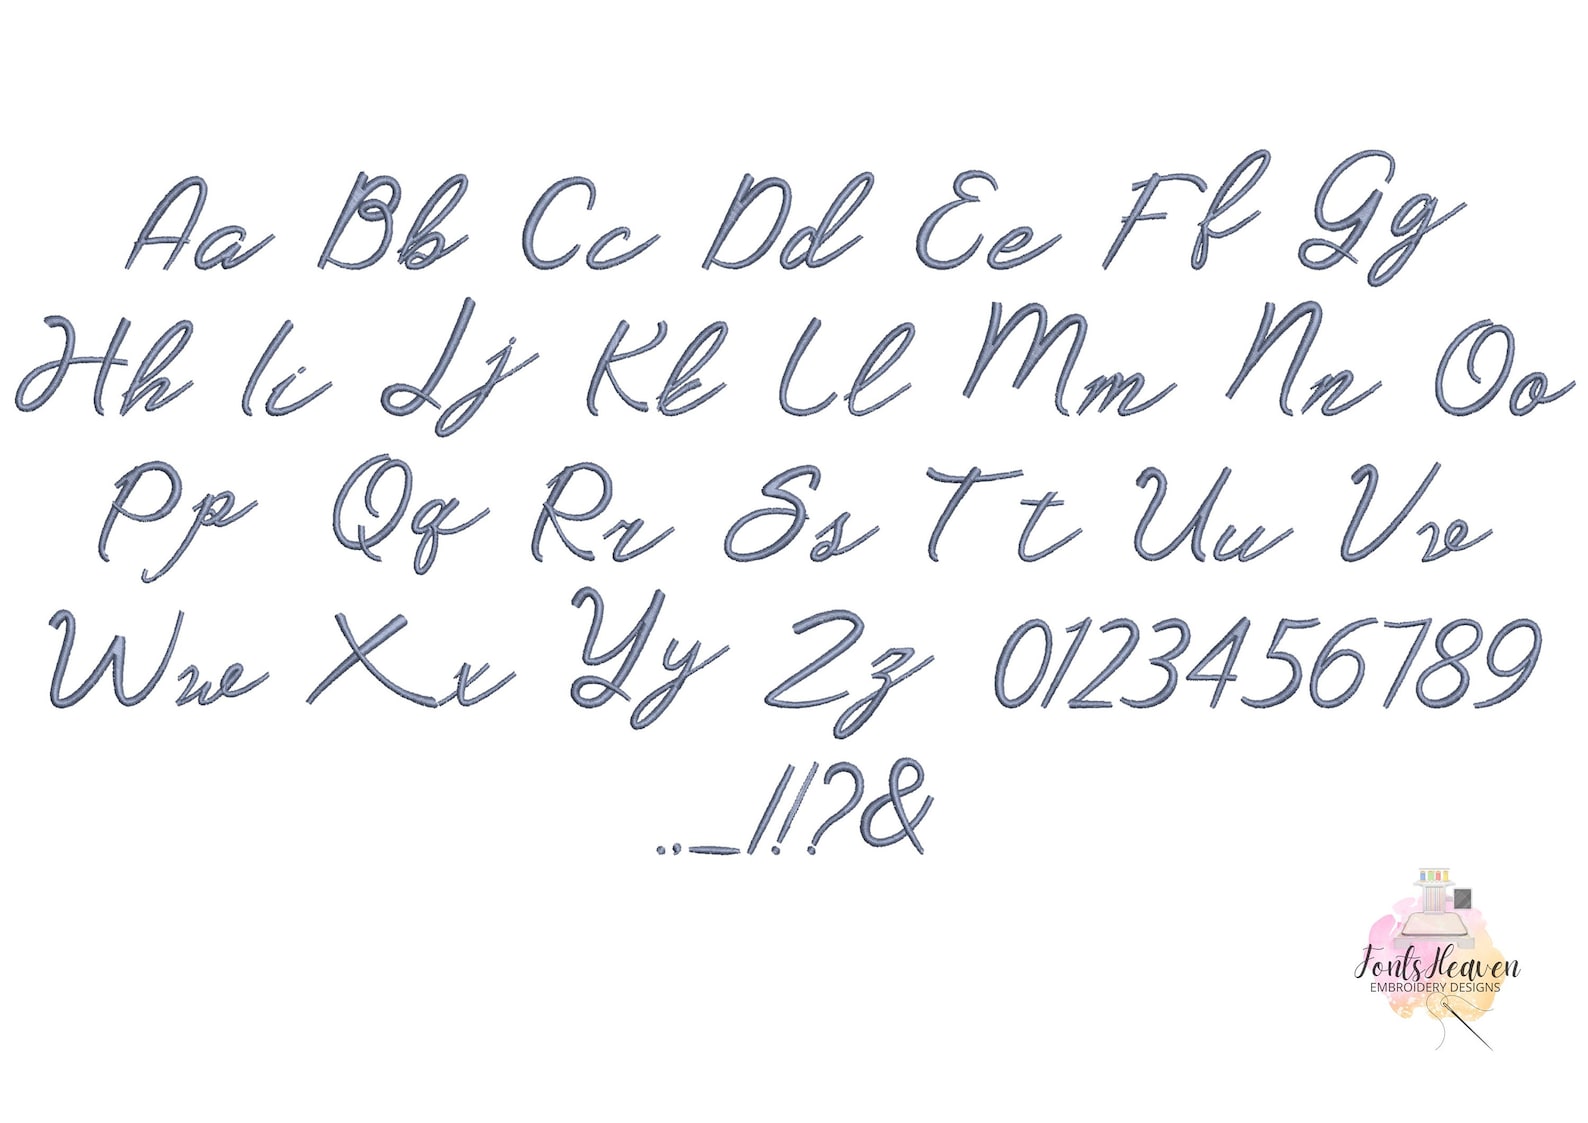 Aa Bb Cc Dd Ee Ff Gg
Hh Ii Jj Kk Ll Mm Nn Oo
Pp Qq Rr Ss Tt Uu Vv
Ww Xx Yy Zz 0123456789
.,_/!?&
Fonts Heaven
EMBROIDERY DESIGNS